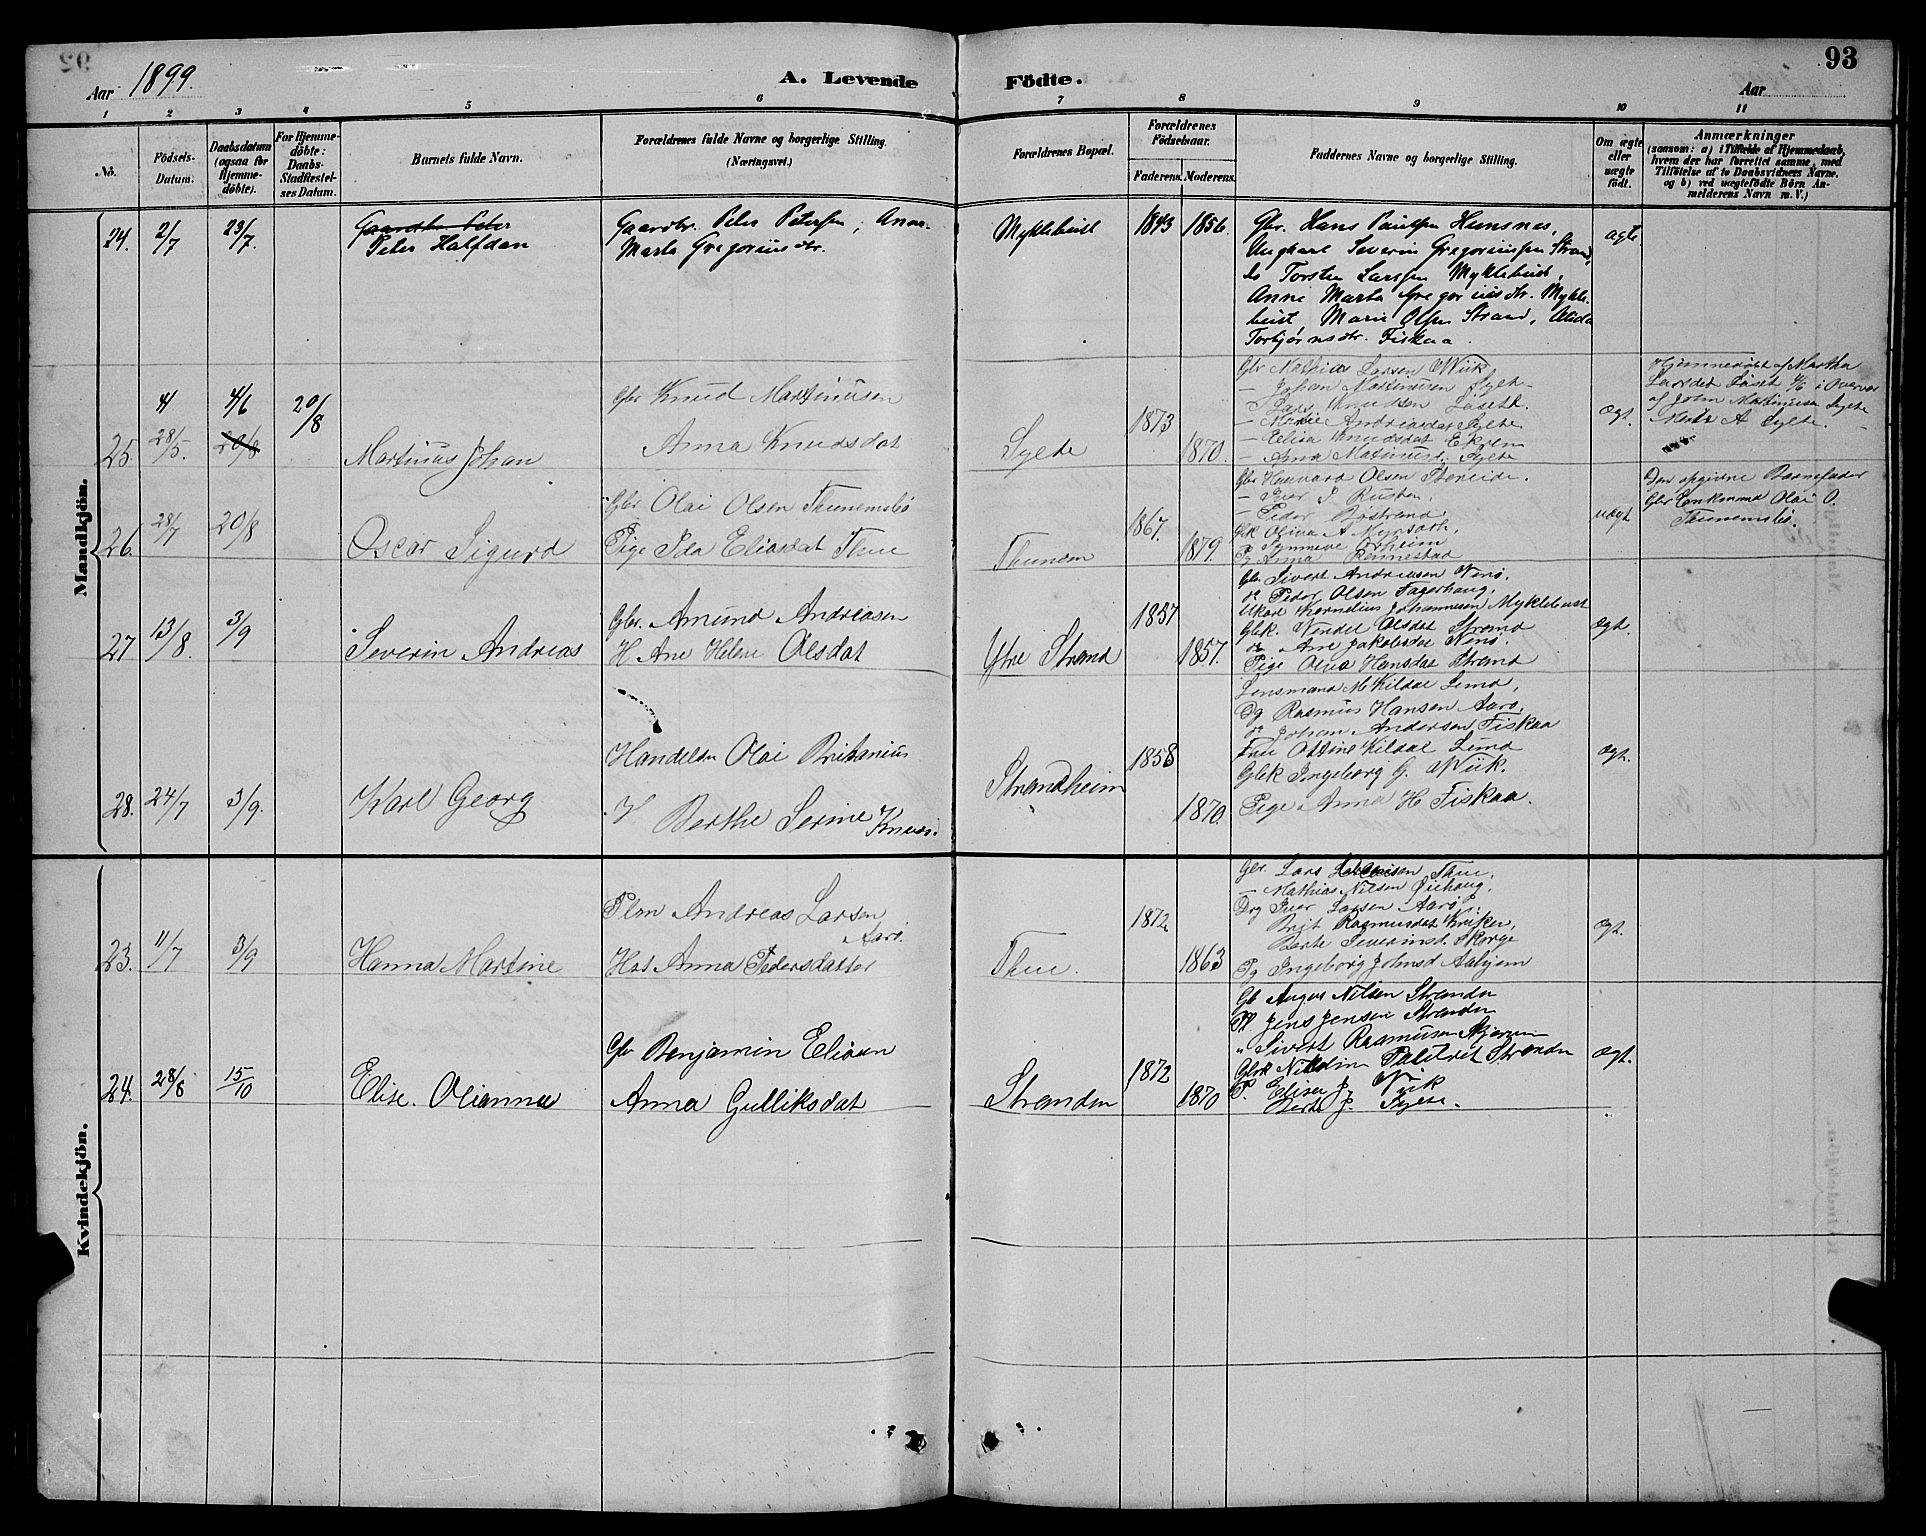 Aar 1899.
A. Levende Födte.
93
Aar
1 2 3 4 5 6 7 8 9 10 11
No.
Födsels-Datum.
Daabsdatum (ogsaa for Hjemme-döbte).
For Hjemme-döbte: Daabs-Stadfæstelses Datum.
Barnets fulde Navn.
Forældrenes fulde Navne og borgerlige Stilling. (Næringsvei.)
Forældrenes Bopæl.
Forældrenes Födselsaar.
Faderens. Moderens.
Faddernes Navne og borgerlige Stilling.
Om ægte eller uægte födt.
Anmærkninger
(saasom: a) i Tilfælde af Hjemmedaab,
hvem der har forrettet samme, med
Tilföielse af to Daabsvidners Navne,
og b) ved uægtefödte Börn An-
melderens Navn m. V.)
Mandkjön.
24. 2/7 23/7.
Gaardbr. Peter
Peter Halfdan
Gaardbr. Peter Petersen, Anne
Marta Gregoriusdtr.
Myklebust
1843 1856.
Gbr. Hans Paulsen Humsnes,
Ungkarl Severin Gregoriussen Strand,
do Torsten Larssen Myklebust,
Anne Marta Gregoriusdtr. Mykle-
bust, Marie Olsen Strand, Alida
Torbjørnsdtr. Fiskaa.
ægte.
25. 28/5. 4/6 20/8 20/8
Martinus Johan
Gbr Knud Martinusen
Anna Knudsdat
Sylte
1873 1870.
Gbr Mathias Larsen Wiik
- Johan Martinusen Sylte
- Lars Knudsen Løseth
- Marie Andriasdat Sylte
- Elisa Knudsdat Ekrem
- Anna Matinusd. Sylte
Ægt.
Hjemmedøbt af Martha
Larsdat Løset 4/6 i Overvær
af John Martinusen Sylte
Marte A Sylte.
26. 28/7 20/8
Oscar Sigurd
Gbr Olai Olsen Thunemsbø
Pige Ida Eliasdat Thue
Thunem
1867. 1879.
Gbr Haavard Olsen Steneide.
- Iver I Rusten,
- Peder Røstrand,
Gbk Olina A Myrsæth,
P. Synneve Ørheim
Pg Anna Rennestad
uægt
Den opgivne Barnefader
Gbr Enkemand Olai O.
Thunemsbø.
27 13/8. 3/9
Severin Andreas
Gbr. Amund Andreasen
H Ane Helene Olsdat
Ytre Strand
1857 1857.
Gbr. Sivert Andreasen Nerø.
do Peder Olsen Fagerhaug,
Ukarl Kornelius Johannesen Myklebust
Gbk. Vendel Olsdat Strand
do Ane Jakobsdat Nerø.
Pige Olina Hansdat Strand
Ægt.
28. 24/7 3/9.
Karl Georg
Handelsm Olai Britanius
H Berthe Serine Knudsd.
Strandheim
1858 1870.
Lensmand M Kildal Lund,
Dg Rasmus Hansen Aarø,
do Johan Andersen Fiskaa
Frue Ottine Kildal Lund
Gbk Ingeborg G. Wiik.
Pige Anna H Fiskaa.
Ægt.
Kvindekjön.
23. 11/7 3/9
Hanna Martine
Plm Andreas Larsen
Aarø.
Hst Anna Pedersdatter
Thue.
1872 1863
Gbr. Lars Thue.
- Mathias Nilsen Øiehaug.
Drg Iver Larsen Aarø
Brit Rasmusdat Kriken,
Berte Severinsd. Skorge
Pg Ingeborg Johnsd Aahjem
Ægt.
24. 28/8 15/10
Elise Olianna
Gbr Benjamin Eliasen
Anna Gulliksdat
Stranden
1872 1870
Gb August Nilsen Stranden
Jens Jensen Stranden
" Sivert Rasmusen
Gbk Stranden
P. Elisa J Wiik
Berte J. Sylte.
Ægt.